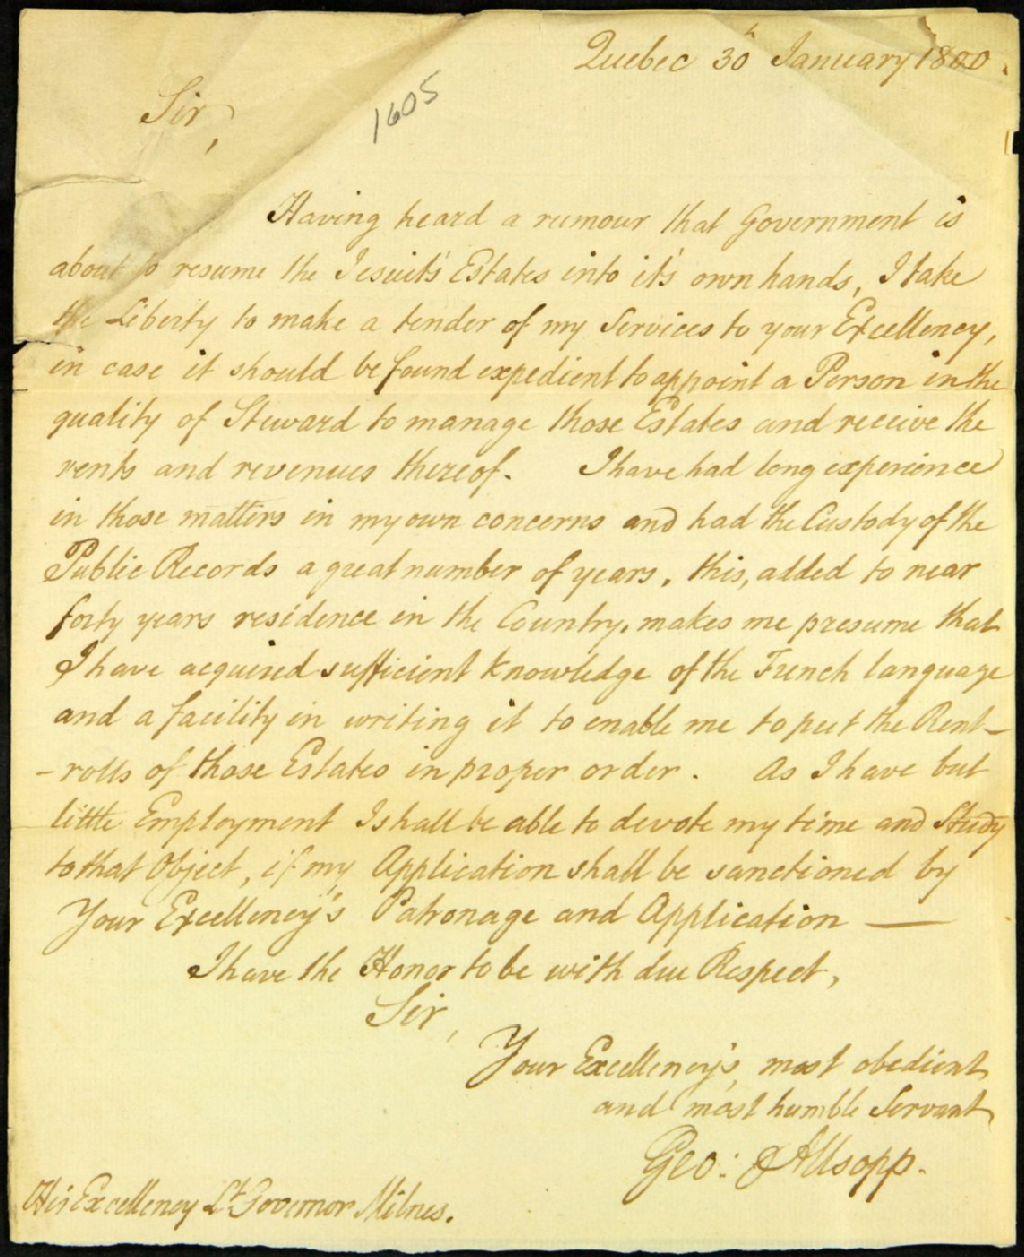 Quebec 30h January 1800.
Sir,
1605
Having heard a rumour that Government is
about to resume the Jesuits' Estates into it's own hands, I take
the Liberty to make a tender of my Services to your Excellency,
in case it should be found expedient to appoint a Person in the
quality of Steward to manage those Estates and receive the
rents and revenues thereof. I have had long experience
in those matters in my own concerns and had the Custody of the
Public Records a great number of years, this, added to near
forty years residence in the Country, makes me presume that
I have acquired sufficient knowledge of the French language
and a facility in writing it to enable me to put the Rent-
-rolls of those Estates in proper order. As I have but
little Employment I shall be able to devote my time and Study
to that Object, if my Application shall be sanctioned by
Your Excellency's Patronage and Application —
I have the Honor to be with due Respect,
Sir,
Your Excellency's most obedient
and most humble Servant
Geo: Allsopp.
His Excellency Lt. Governor Milnes.